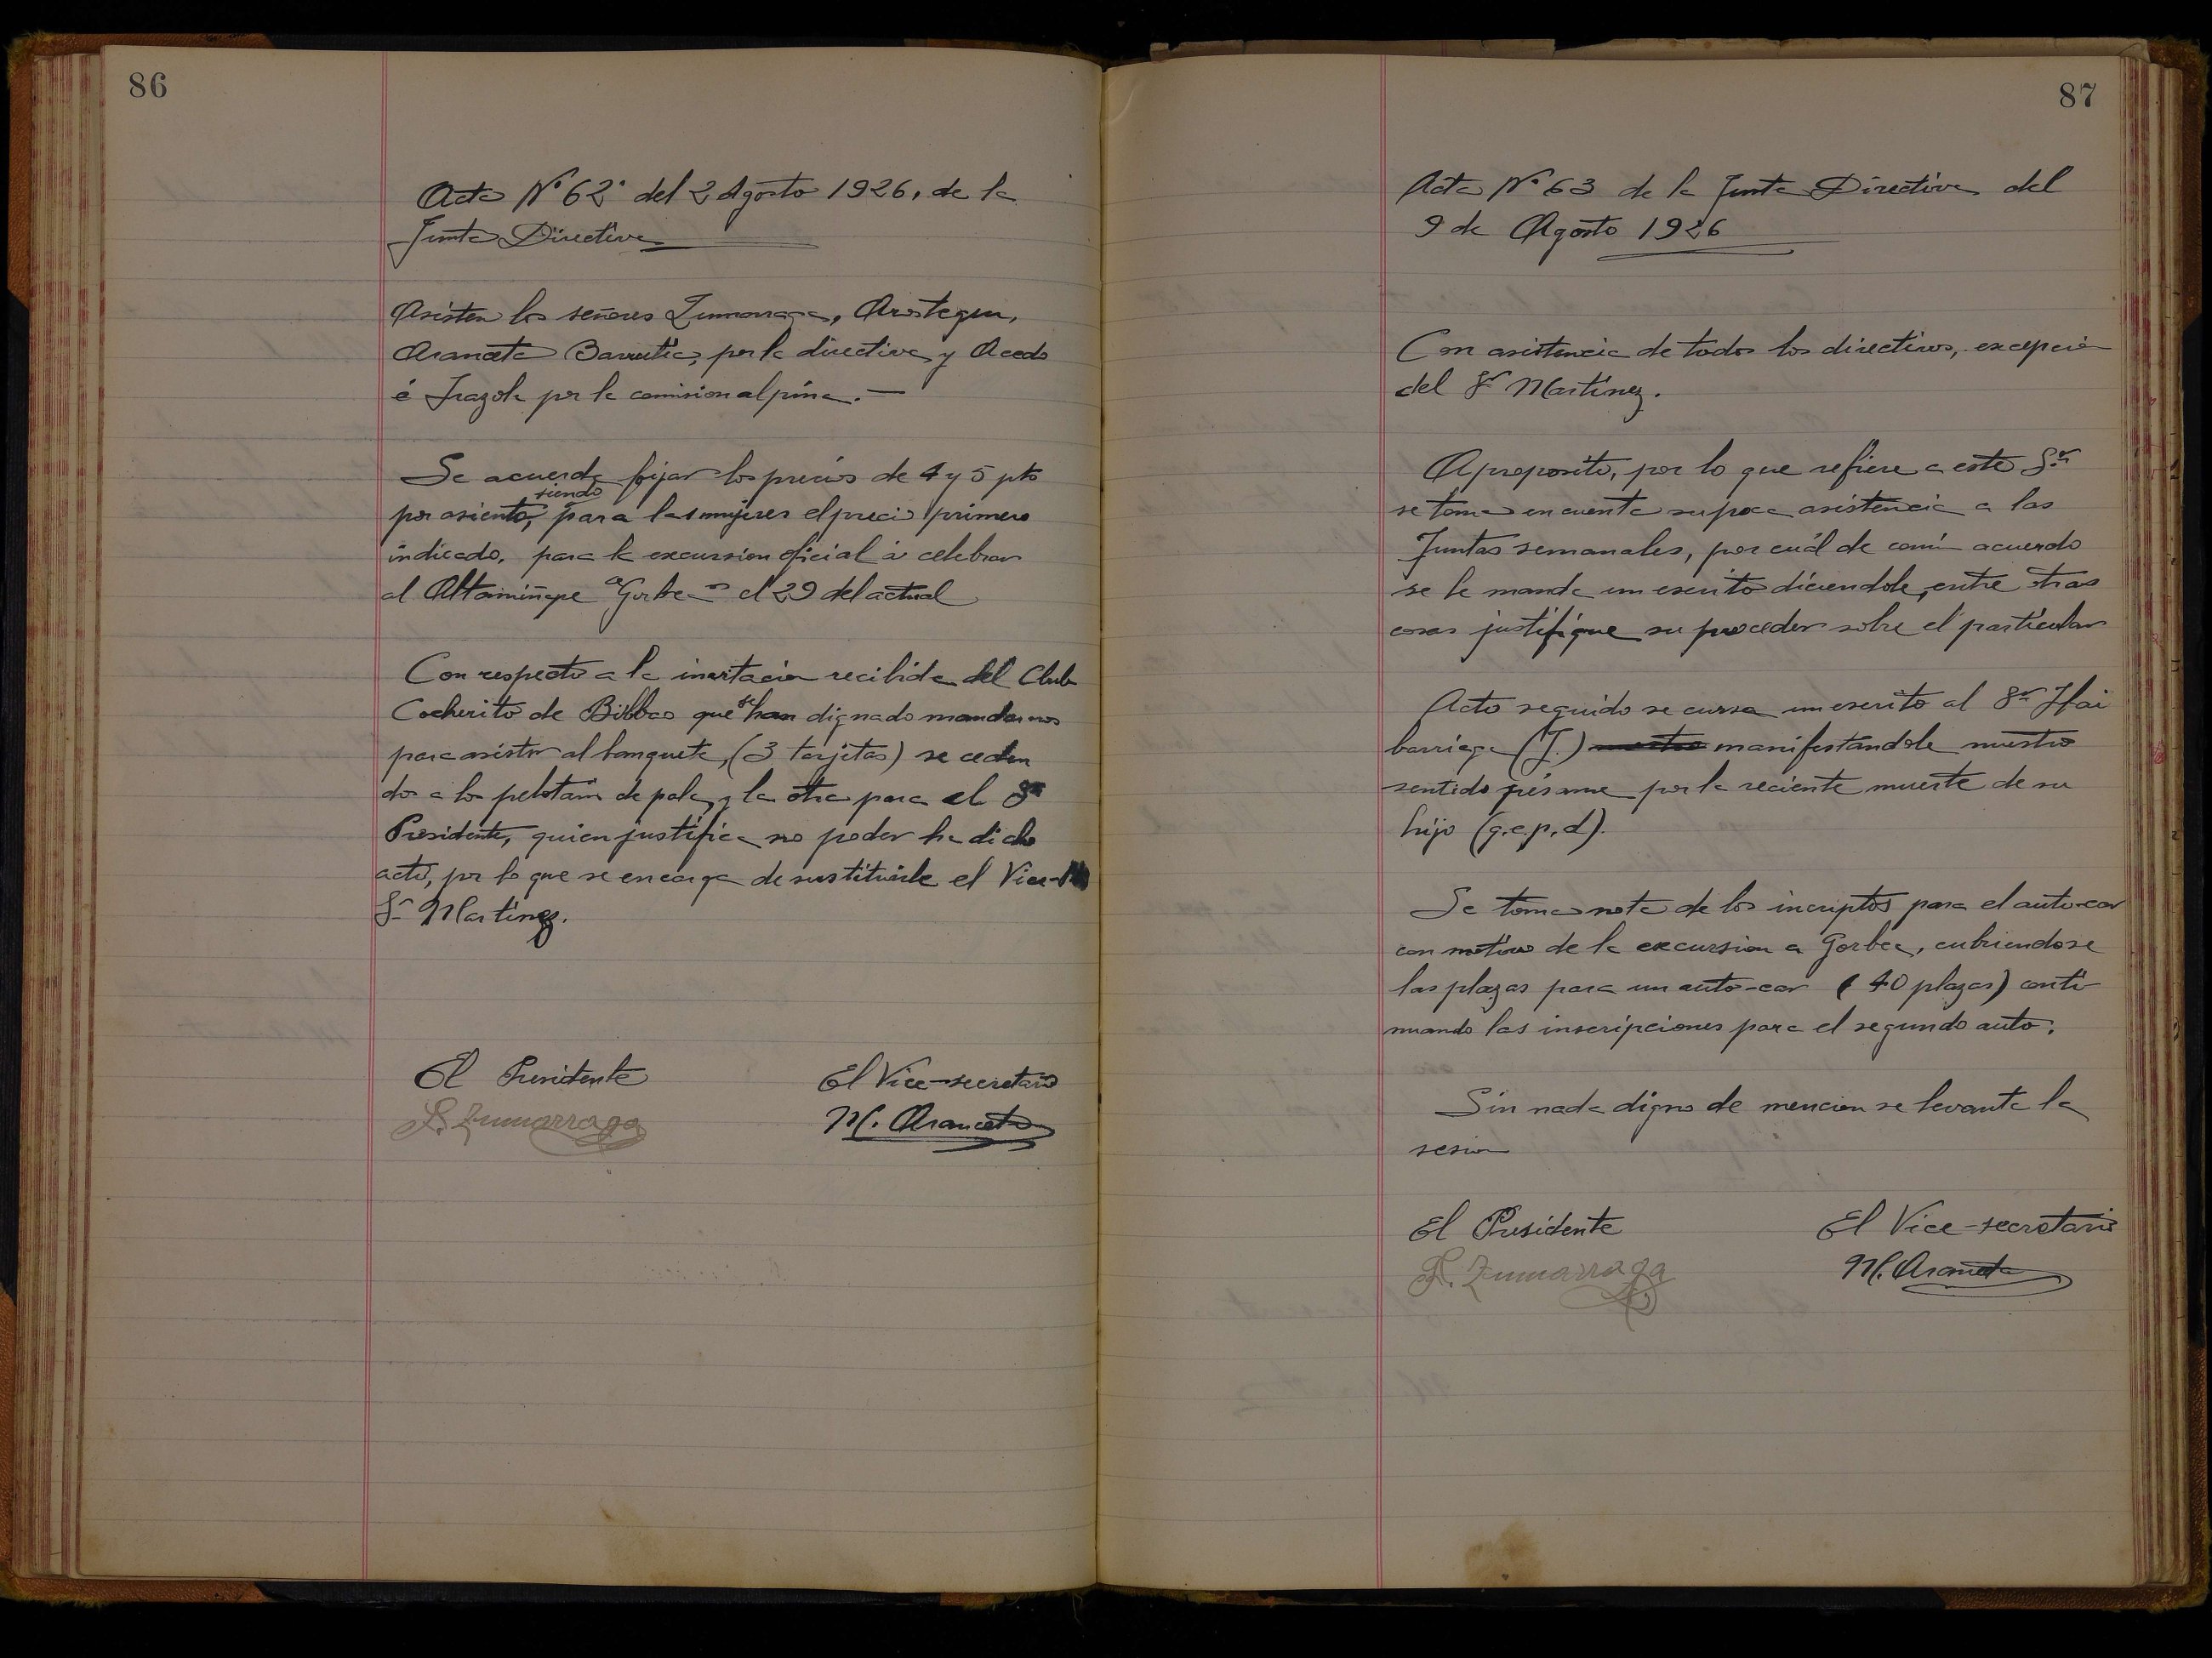 86
Acta Nº 62º del 2 Agosto 1926, de la
Junta Directiva
Asisten los señores Zumarraga, Arostegui,
Aranceta Barrutia, por la directiva y Acedo
é Irazola por la comision alpina. —
Se acuerda fijar los precios de 4 y 5 pts
por asiento, siendo para las mujeres el precio primero
indicado, para la excursion oficial à celebrar
al Altamiñape a Gorbea el 29 del actual
Con respecto a la invitación recibida del Club
Cocherito de Bilbao que se han dignado mandarnos
para asistir al banquete, (3 tarjetas) se ceden
dos a los pelotaris de pala, y la otra para el Sr
Presidente, quien justifica no poder ha dicho
acto, por lo que se encarga de sustituirle el Vice-
Sr Martinez.
El Presidente
El Vice-secretario
Zumarraga
M. Aranceta
87
Acta Nº 63 de la Junta Directiva del
9 de Agosto 1926
Con asistencia de todos los directivos, excepción
del Sr Martinez.
A proposito, por lo que refiere a este Sr.
se toma en cuenta su poca asistencia a las
Juntas semanales, por cuál de común acuerdo
se le manda un escrito diciendole, entre otras
cosas justifique su proceder sobre el particular
Acto seguido se cursa un escrito al Sr Ifai
barriaga (J.) manifestándole nuestro
sentido pésame por la reciente muerte de su
hijo (q.e.p.d).
Se toma nota de los incriptos para el auto-car
con motivo de la excursion a Gorbea, cubriendose
las plazas para un auto-car (40 plazas) conti-
nuando las inscripciones para el segundo auto.
Sin nada digno de mencion se levanta la
sesion
El Presidente
El Vice-secretario
Zumarraga
M. Aranceta